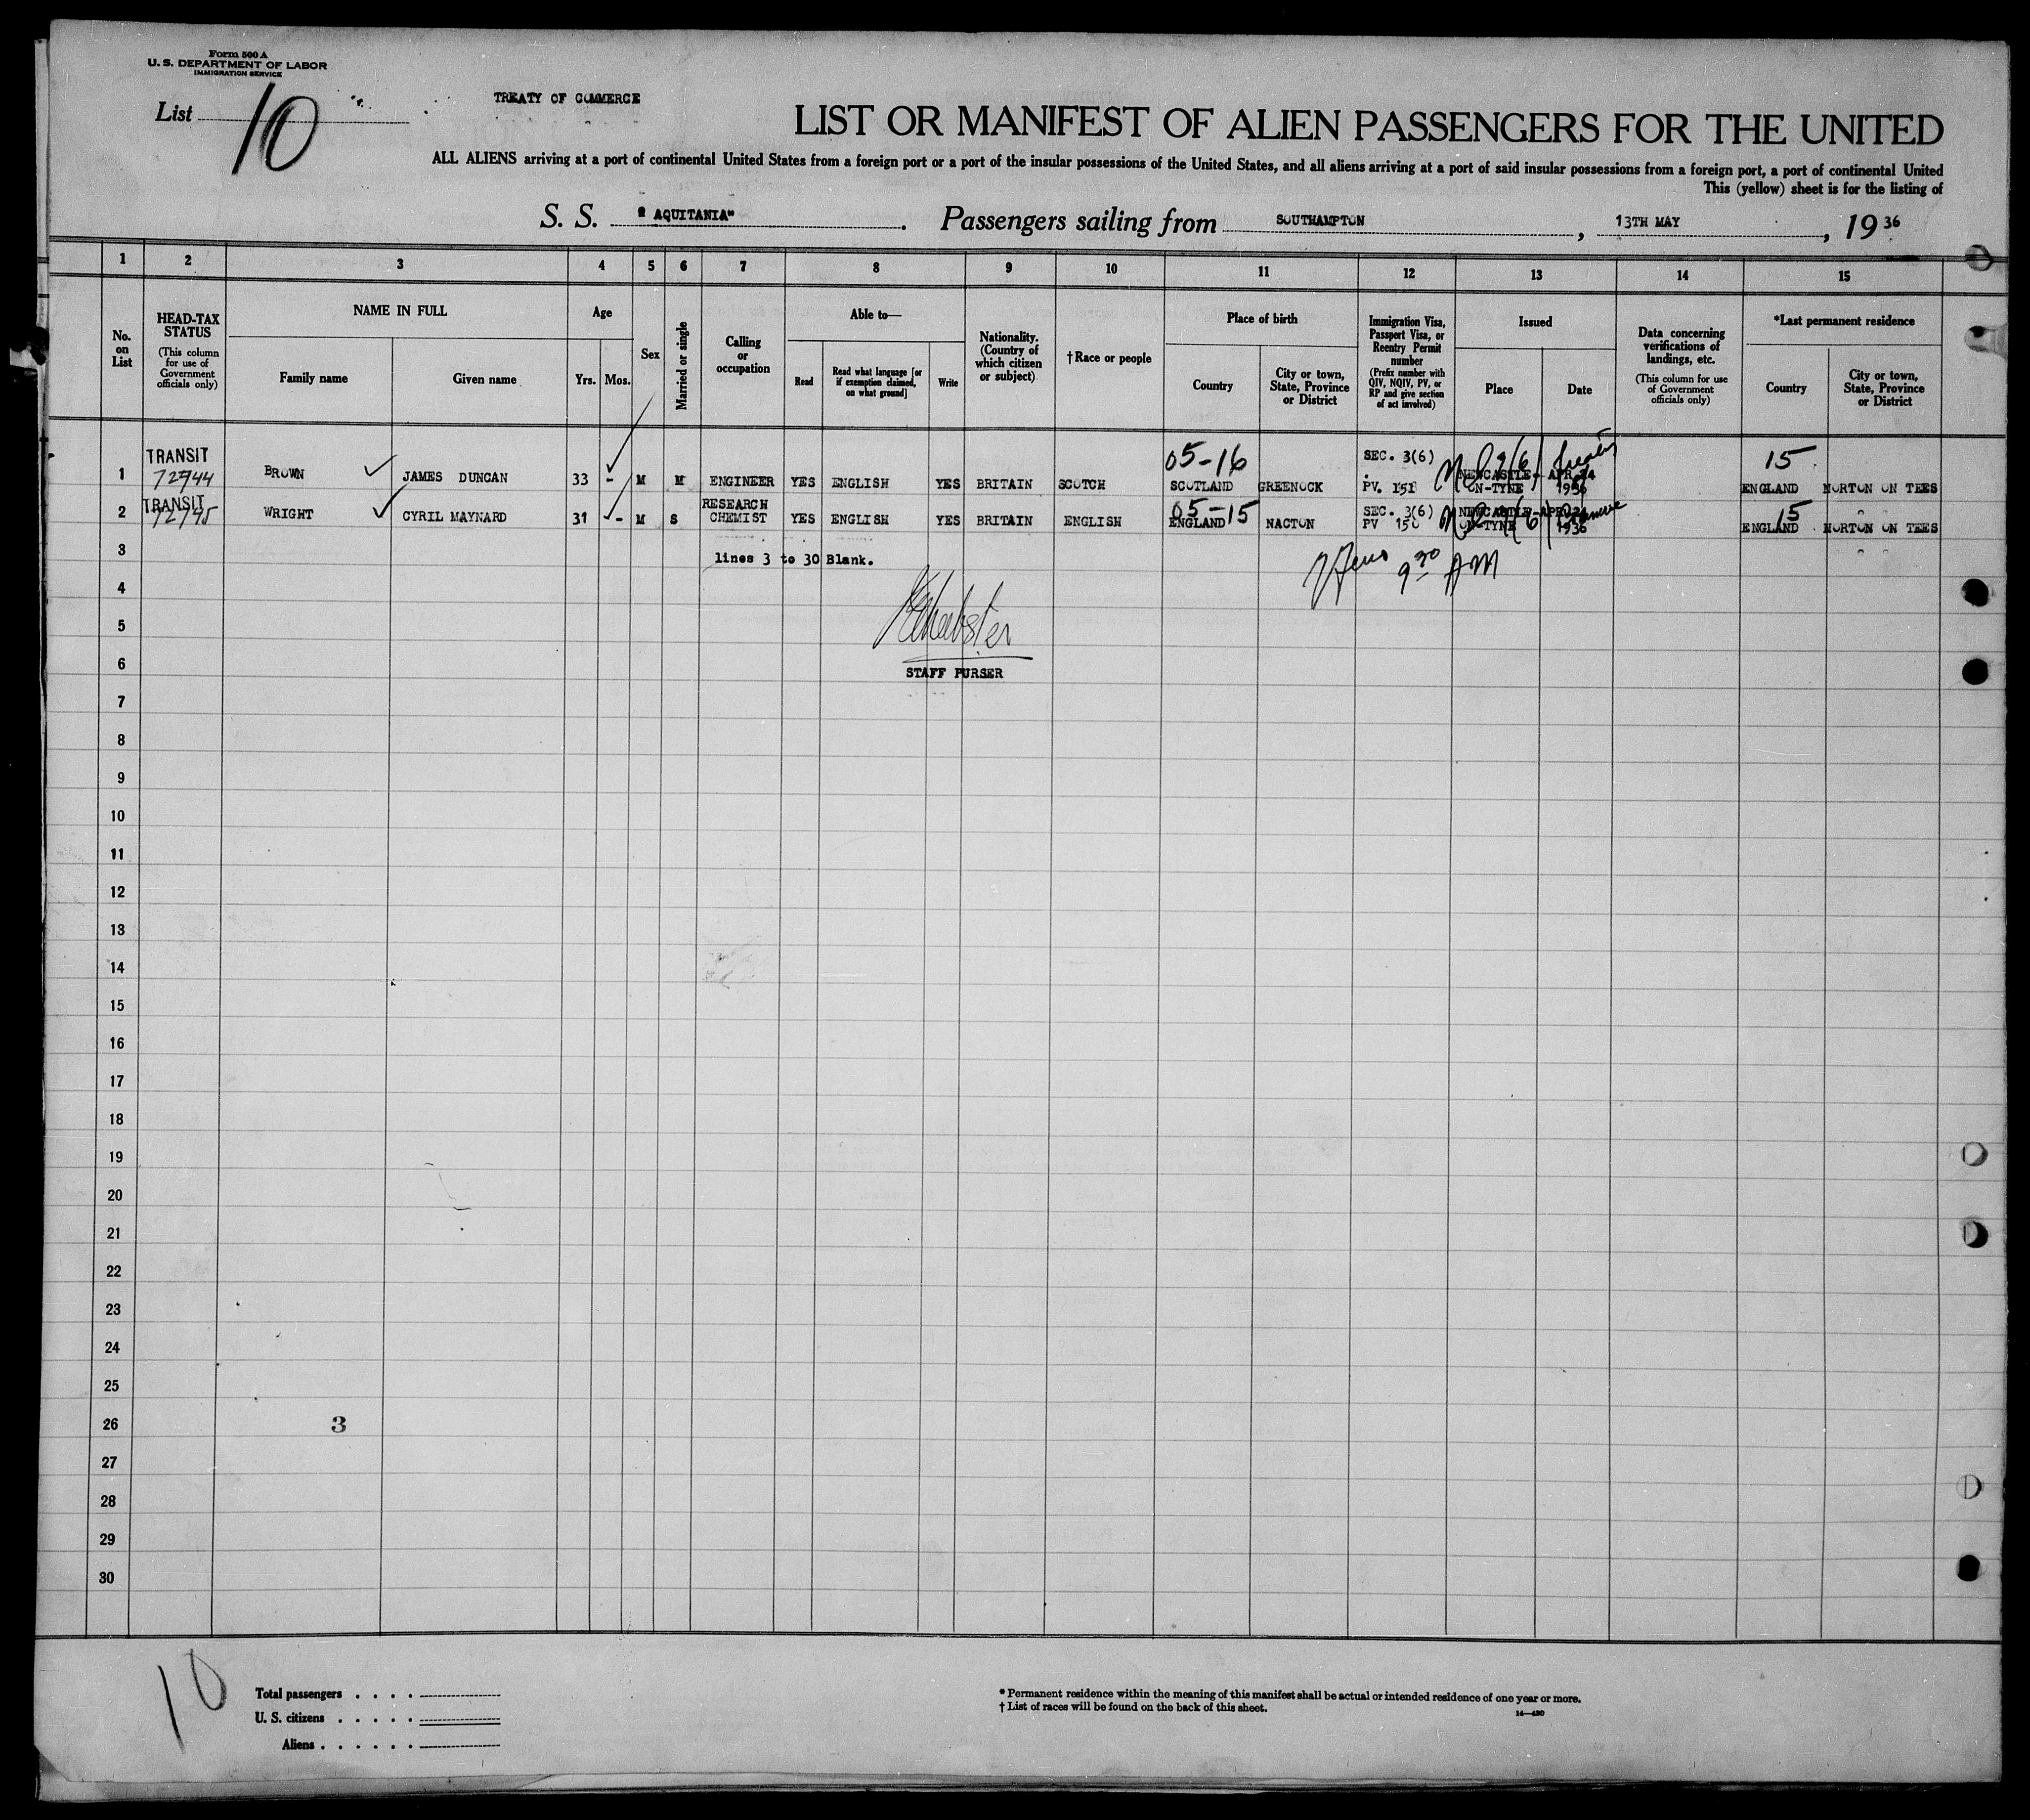 Form 500 A
U. S. DEPARTMENT OF LABOR
IMMIGRATION SERVICE
List 10
TREATY OF COMMERCE
LIST OR MANIFEST OF ALIEN PASSENGERS FOR THE UNITED
ALL ALIENS arriving at a port of continental United States from a foreign port or a port of the insular possessions of the United States, and all aliens arriving at a port of said insular possessions from a foreign port, a port of continental United
This (yellow) sheet is for the listing of
S. S. " AQUITANIA" . Passengers sailing from SOUTHAMPTON , 13TH MAY , 19 36
1 2 3 4 5 6 7 8 9 10 11 12 13 14 15
No. on List
HEAD-TAX STATUS
(This column for use of Government officials only)
NAME IN FULL
Family name
Given name
Age
Yrs. Mos.
Sex
Married or single
Calling or occupation
Able to—
Read
Read what language [or if exemption claimed, on what ground]
Write
Nationality. (Country of which citizen or subject)
†Race or people
Place of birth
Country
City or town, State, Province or District
Immigration Visa, Passport Visa, or Reentry Permit number
(Prefix number with QIV, NQIV, PV, or RP and give section of act involved)
Issued
Place
Date
Data concerning verifications of landings, etc.
(This column for use of Government officials only)
*Last permanent residence
Country
City or town, State, Province or District
TRANSIT 05-16 SEC. 3(6) 15
1 72744 BROWN JAMES DUNCAN 33 - M M ENGINEER YES ENGLISH YES BRITAIN SCOTCH SCOTLAND GREENOCK PV. 151 NEWCASTLE-ON-TYNE APR 24 1936 ENGLAND NORTON ON TEES
TRANSIT RESEARCH 05-15 SEC. 3(6) 15
2 72745 WRIGHT CYRIL MAYNARD 31 - M S CHEMIST YES ENGLISH YES BRITAIN ENGLISH ENGLAND NACTON PV 150 NEWCASTLE-ON-TYNE APR 24 1936 ENGLAND NORTON ON TEES
3 lines 3 to 30 Blank.
9 30 AM
4
5
6
STAFF PURSER
7
8
9
10
11
12
13
14
15
16
17
18
19
20
21
22
23
24
25
26 3
27
28
29
30
10
Total passengers . . . .
U. S. citizens . . . . .
Aliens . . . . . .
* Permanent residence within the meaning of this manifest shall be actual or intended residence of one year or more.
† List of races will be found on the back of this sheet.
14—430